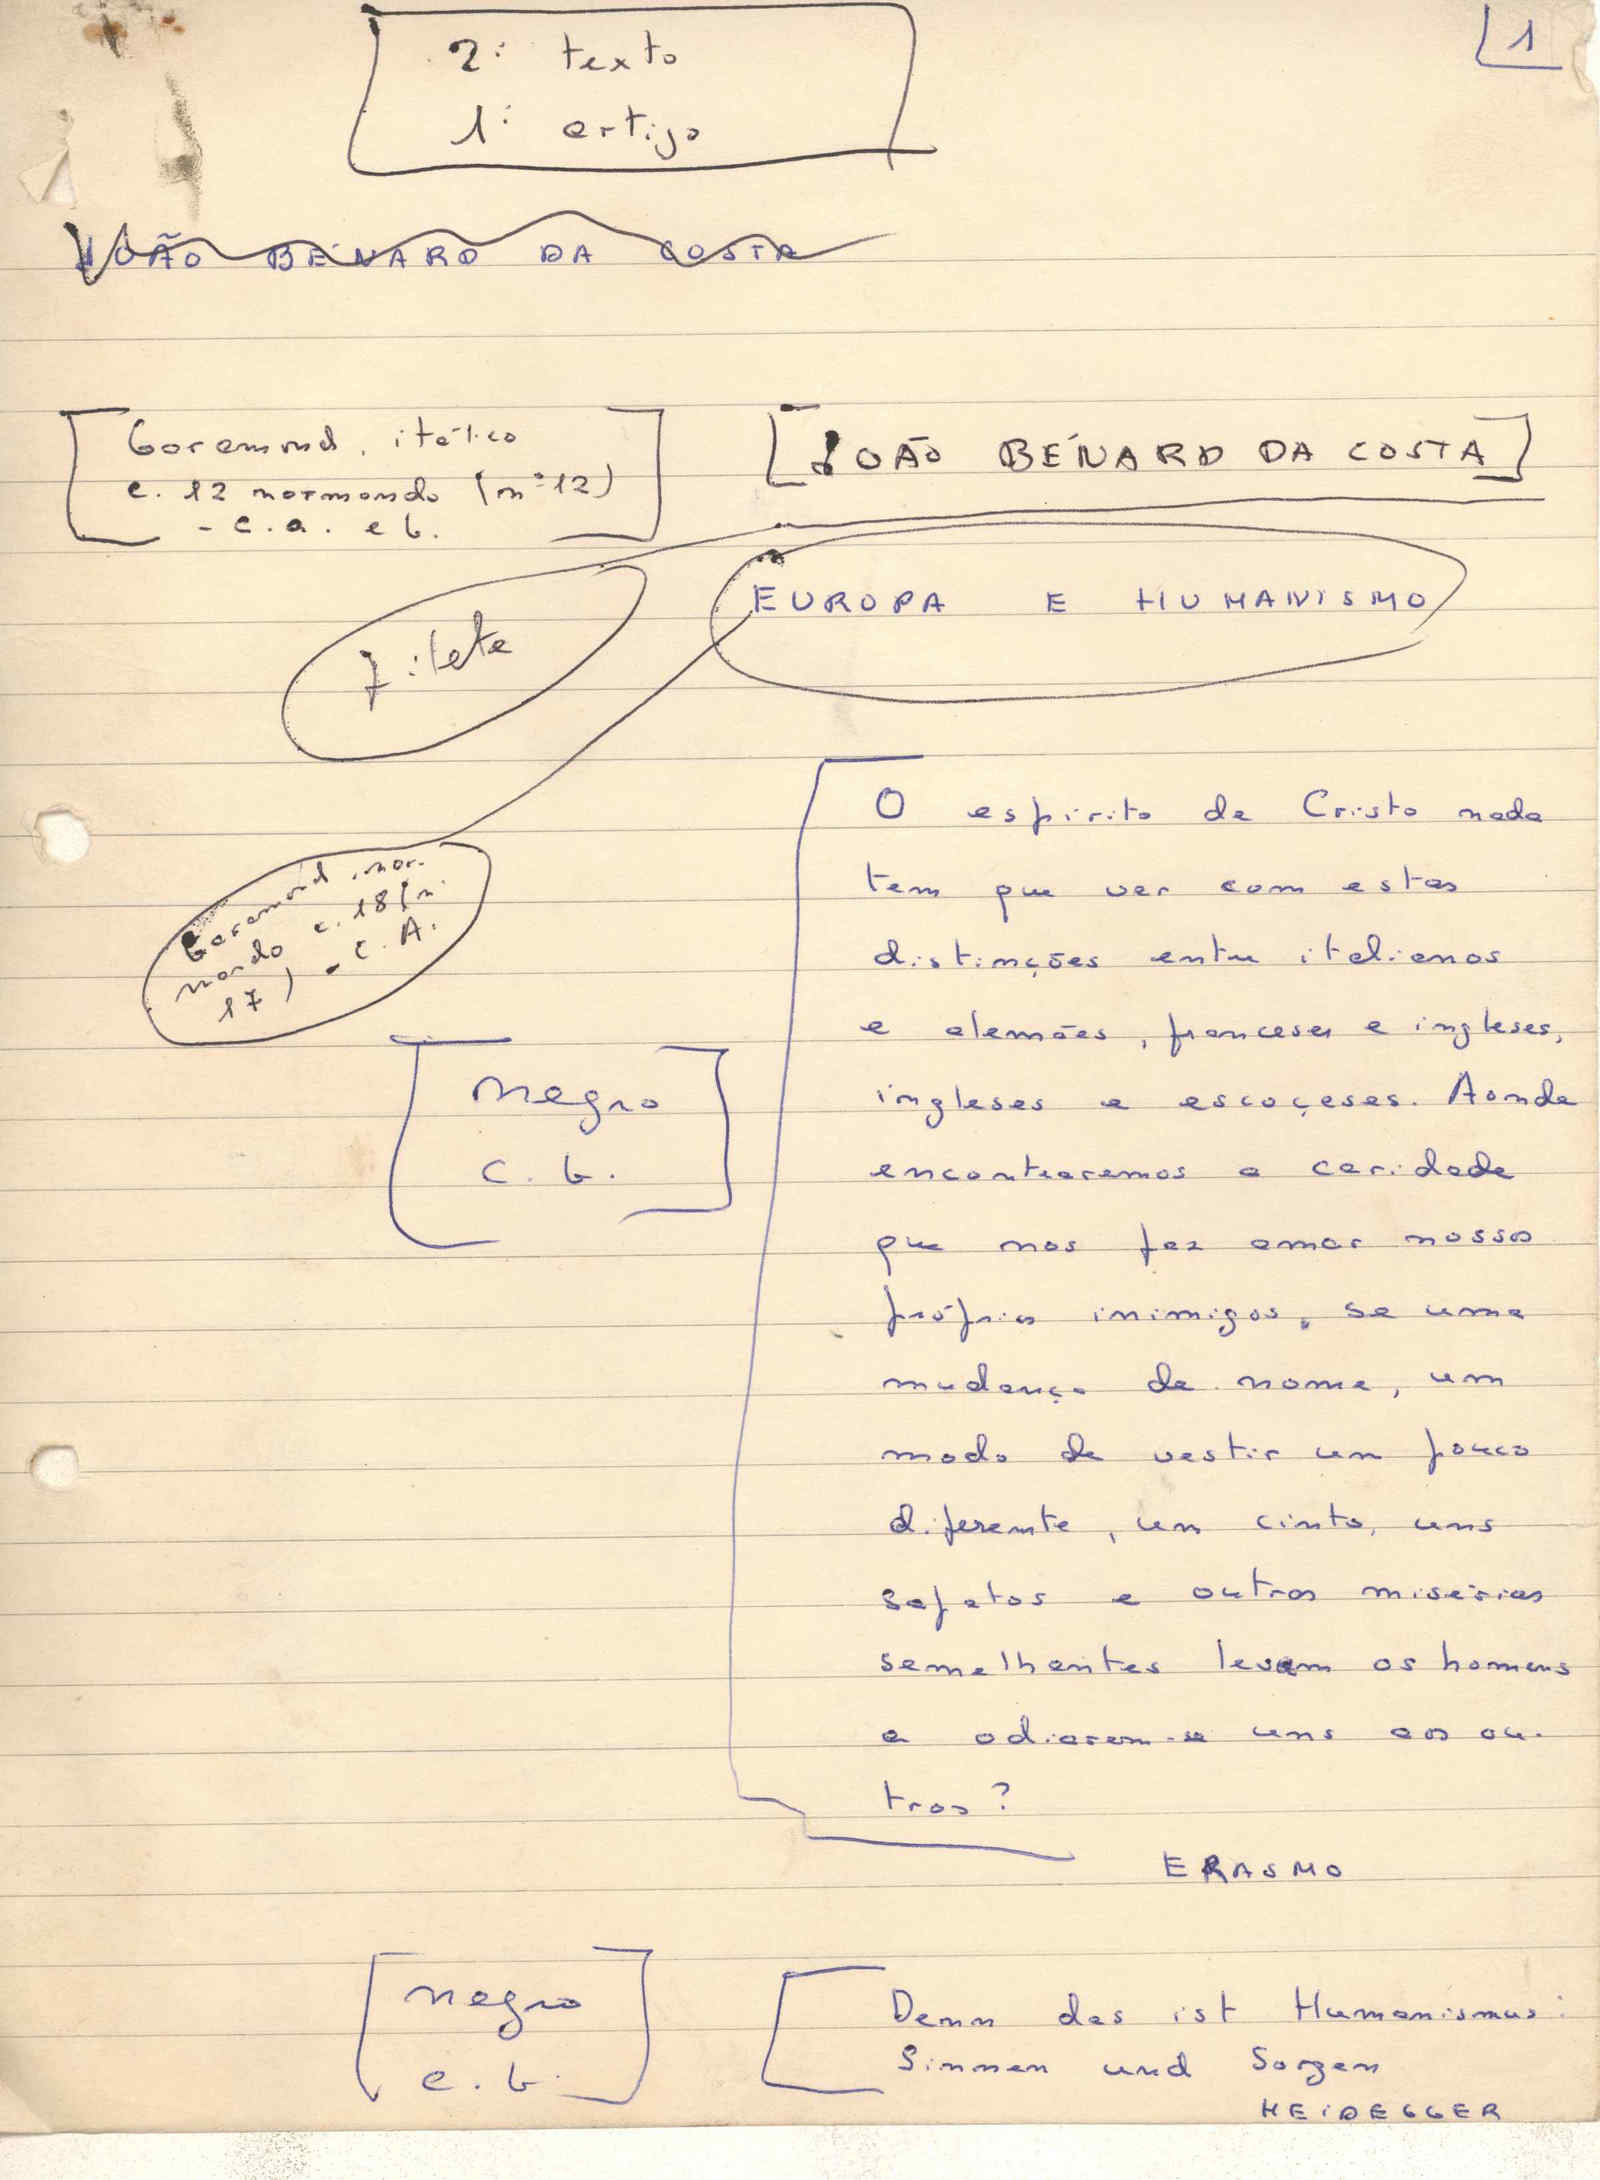 1
2º texto
1º artigo
JOÃO BÉNARD DA COSTA
Garamond, itálico
c. 12 normando (nº 12)
- c. a. e b.
[JOÃO BÉNARD DA COSTA]
EUROPA E HUMANISMO
filete
Garamond, nor-
mando c. 18 (nº
17) - C. A.
O espírito de Cristo nada
tem que ver com estas
distinções entre italianos
e alemães, franceses e ingleses,
ingleses e escoçeses. Aonde
encontraremos a caridade
que nos faz amar nossos
próprios inimigos, se uma
mudança de nome, um
modo de vestir um pouco
diferente, um cinto, uns
sapatos e outras misérias
semelhantes levam os homens
a odiarem-se uns aos ou-
tros?
ERASMO
negro
c. b.
Denn das ist Humanismus:
Sinnen und Sorgen
HEIDEGGER
negro
c. b.